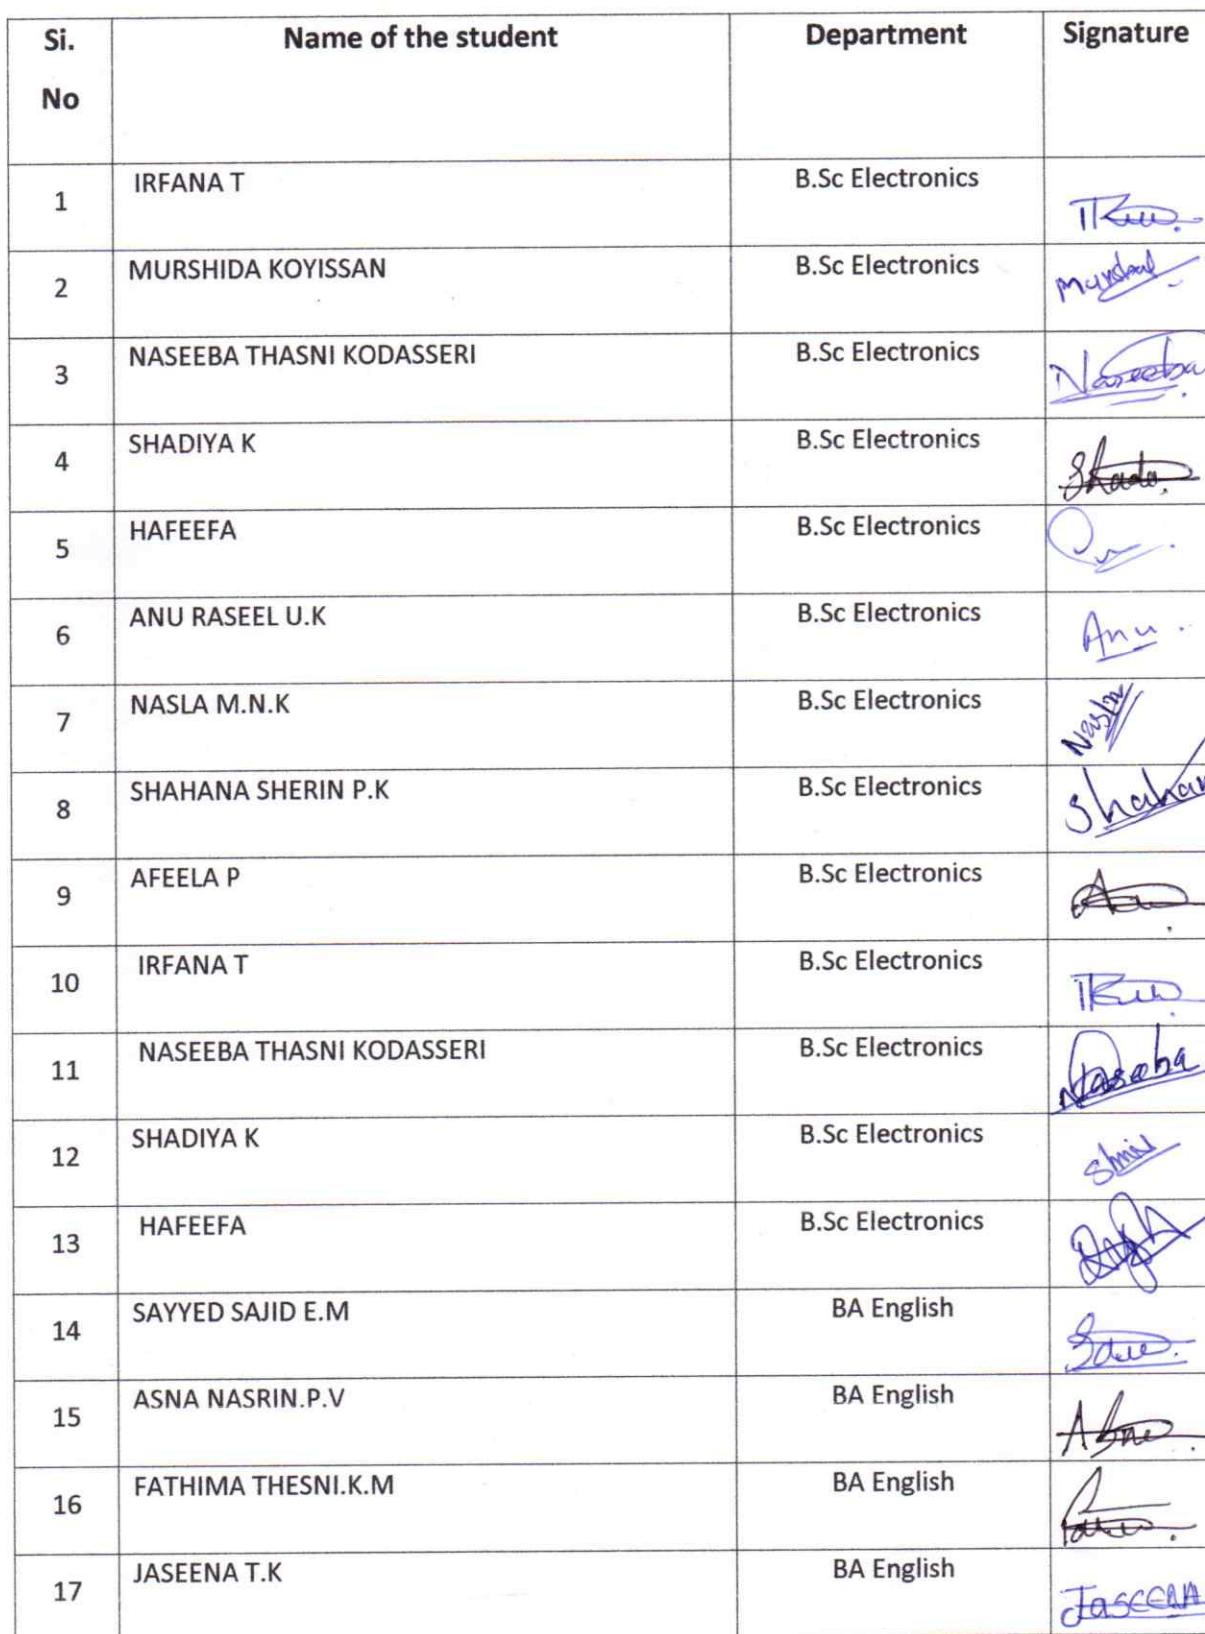 Si. No Name of the student Department Signature
1 IRFANA T B.Sc Electronics
2 MURSHIDA KOYISSAN B.Sc Electronics
3 NASEEBA THASNI KODASSERI B.Sc Electronics Naseeba
4 SHADIYA K B.Sc Electronics
5 HAFEEFA B.Sc Electronics
6 ANU RASEEL U.K B.Sc Electronics Anu.
7 NASLA M.N.K B.Sc Electronics Nasla
8 SHAHANA SHERIN P.K B.Sc Electronics Shahan
9 AFEELA P B.Sc Electronics
10 IRFANA T B.Sc Electronics
11 NASEEBA THASNI KODASSERI B.Sc Electronics Naseeba
12 SHADIYA K B.Sc Electronics
13 HAFEEFA B.Sc Electronics
14 SAYYED SAJID E.M BA English
15 ASNA NASRIN.P.V BA English
16 FATHIMA THESNI.K.M BA English
17 JASEENA T.K BA English JASEENA